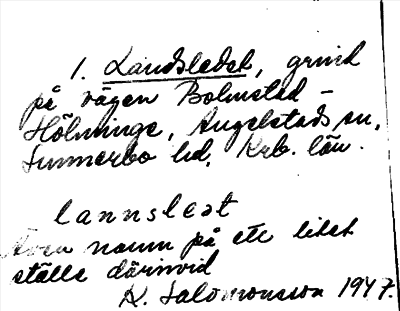 1. Landsledet, grind
på vägen Bolmstad -
Hölminge, Angelstads sn,
Sunnerbo hd, Krb. län.
lannsleat
Även namn på ett litet
ställe därinvid
K. Salomonsson 1947.